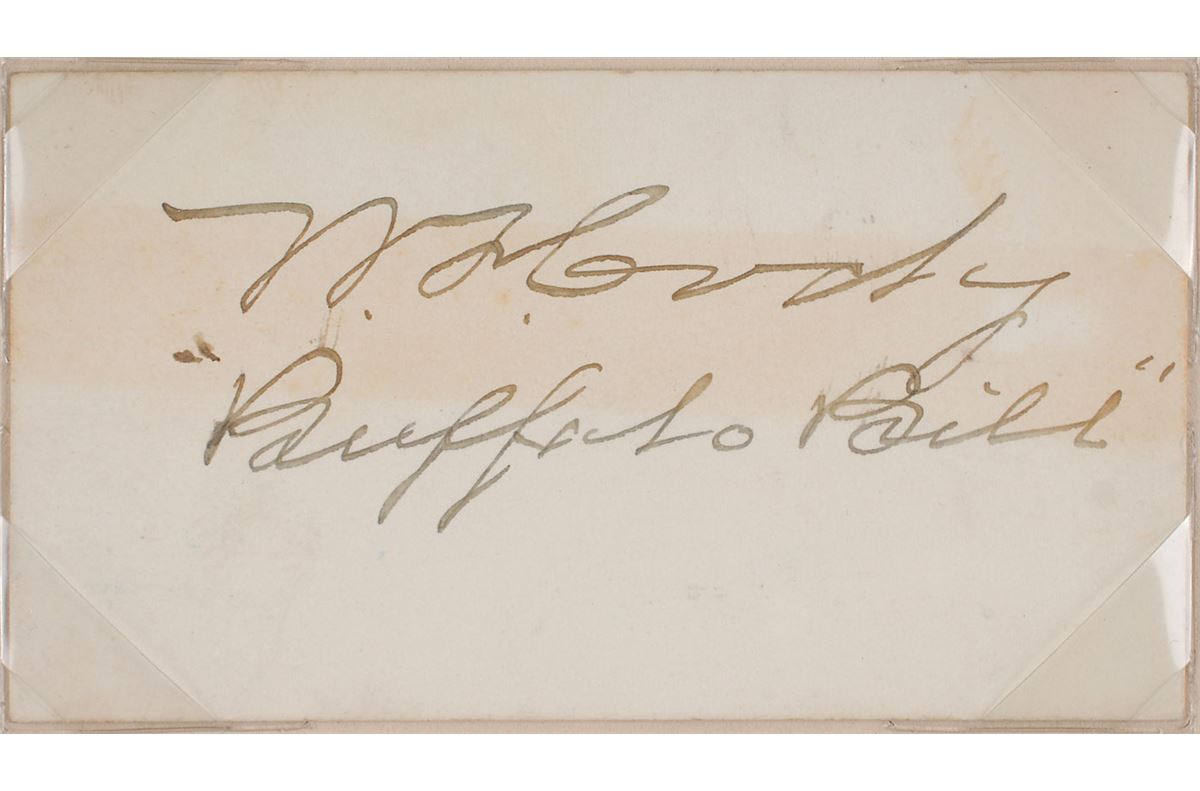 W. F. Cody
"Buffalo Bill"